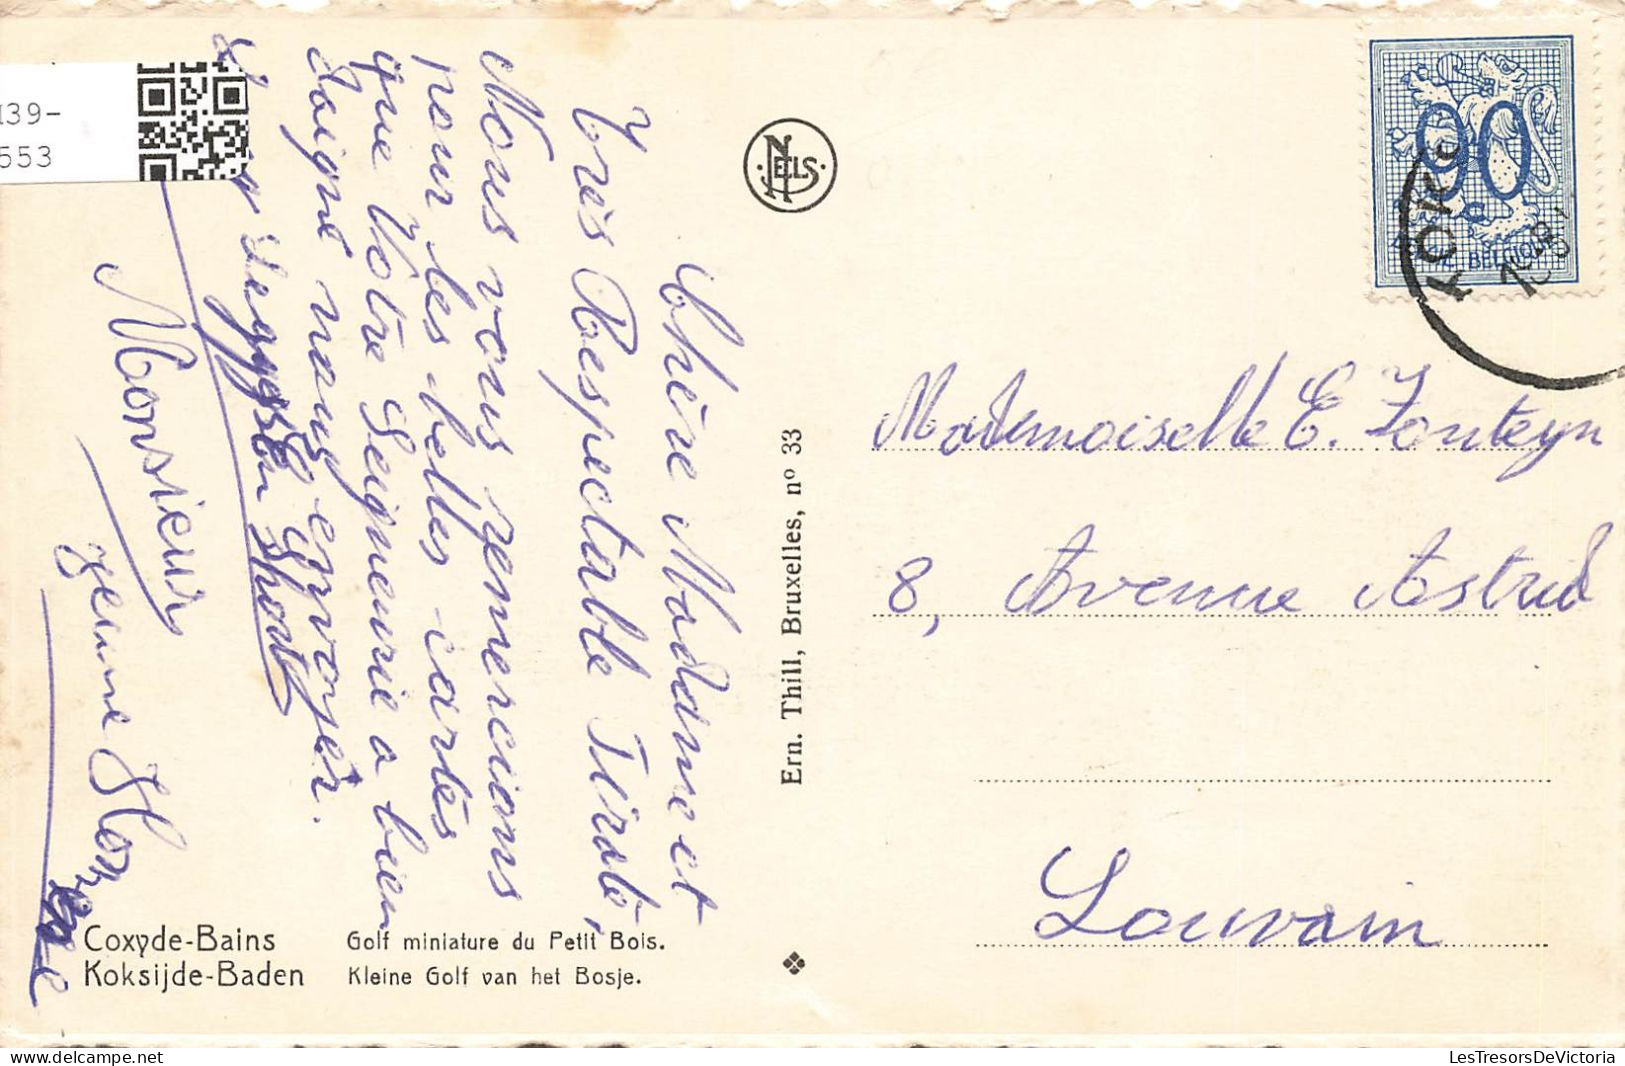 Chère Madame et
Très Respectable Tirate,
Nous vous remercions
pour les belles cartes
que Votre Seigneurie a bien
daigné nous envoyer.
Monsieur
NELS
Ern. Thill, Bruxelles, nº 33
90
BELGIQUE
KOK
Mademoiselle E. Fonteyn
8, Avenue Astrid
Louvain
Coxyde-Bains
Koksijde-Baden
Golf miniature du Petit Bois.
Kleine Golf van het Bosje.
139-
553
LesTresorsDeVictoria